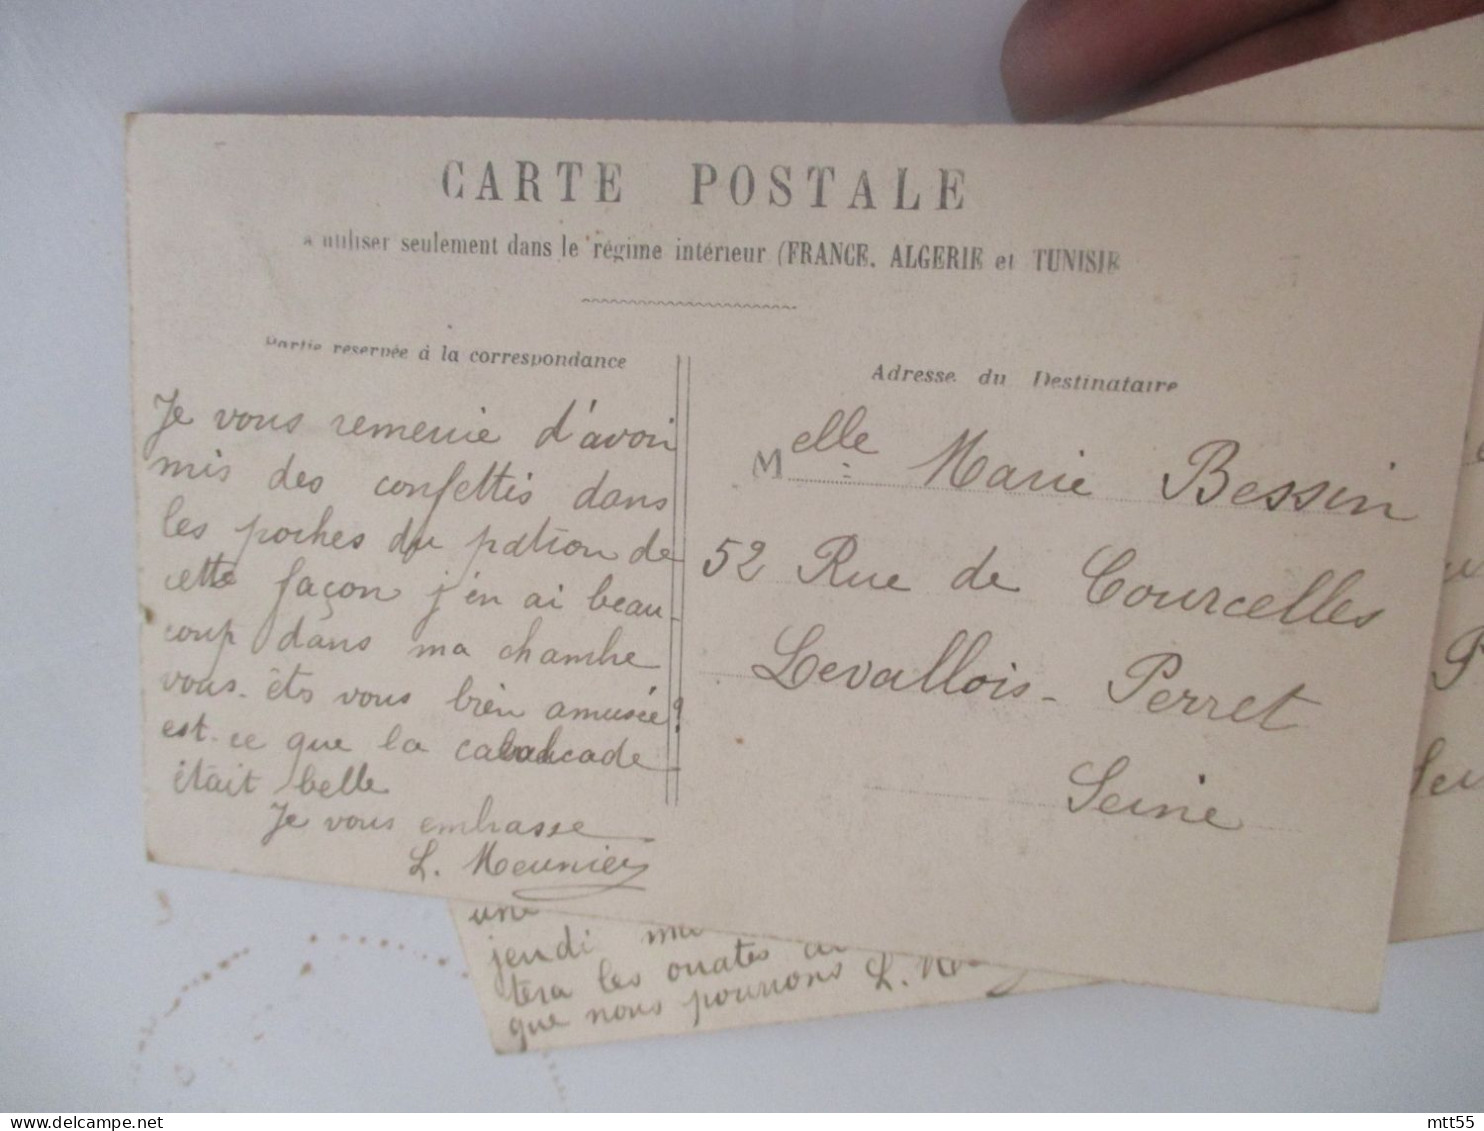 CARTE POSTALE
à utiliser seulement dans le régime intérieur (FRANCE, ALGERIE et TUNISIE
Partie réservée à la correspondance
Je vous remercie d'avoir
mis des confettis dans
les poches du patron de
cette façon j'en ai beau-
coup dans ma chambre
vous êts vous bien amusée?
est-ce que la cavalcade
était belle
Je vous embrasse
L. Meunier
Adresse du Destinataire
Melle Marie Bessin
52 Rue de Courcelles
Levallois-Perret
Seine
une
jendi
tera les ouates
que nous pourrons L.
mtt55